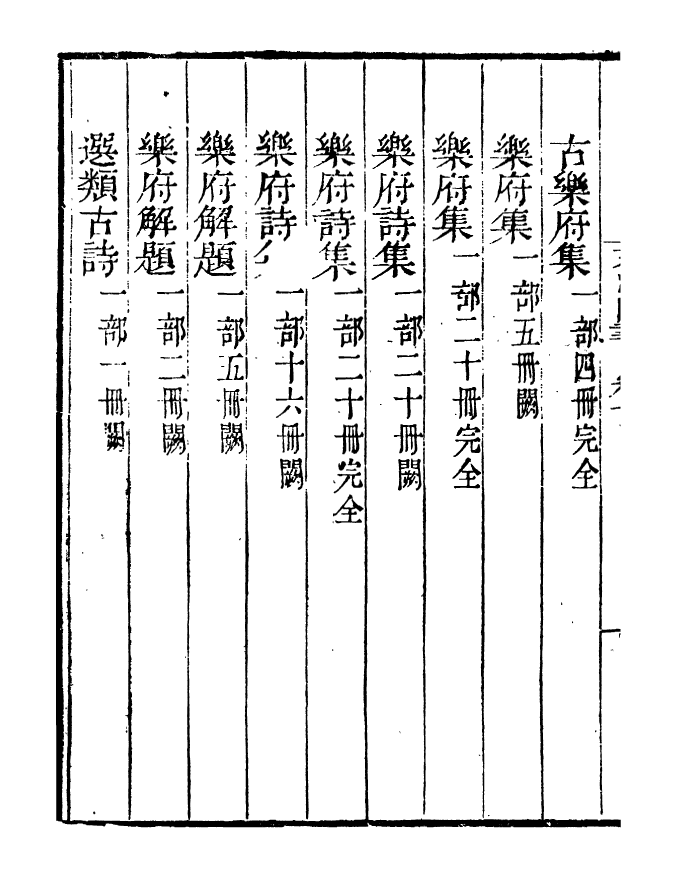 古樂府集一部四冊完全
樂府集一部五冊闕
樂府集一部二十冊完全
樂府詩集一部二十冊闕
樂府詩集一部二十冊完全
樂府詩 一部十六冊闕
樂府解題一部五冊闕
樂府解題一部二冊闕
選類古詩一部一冊闕